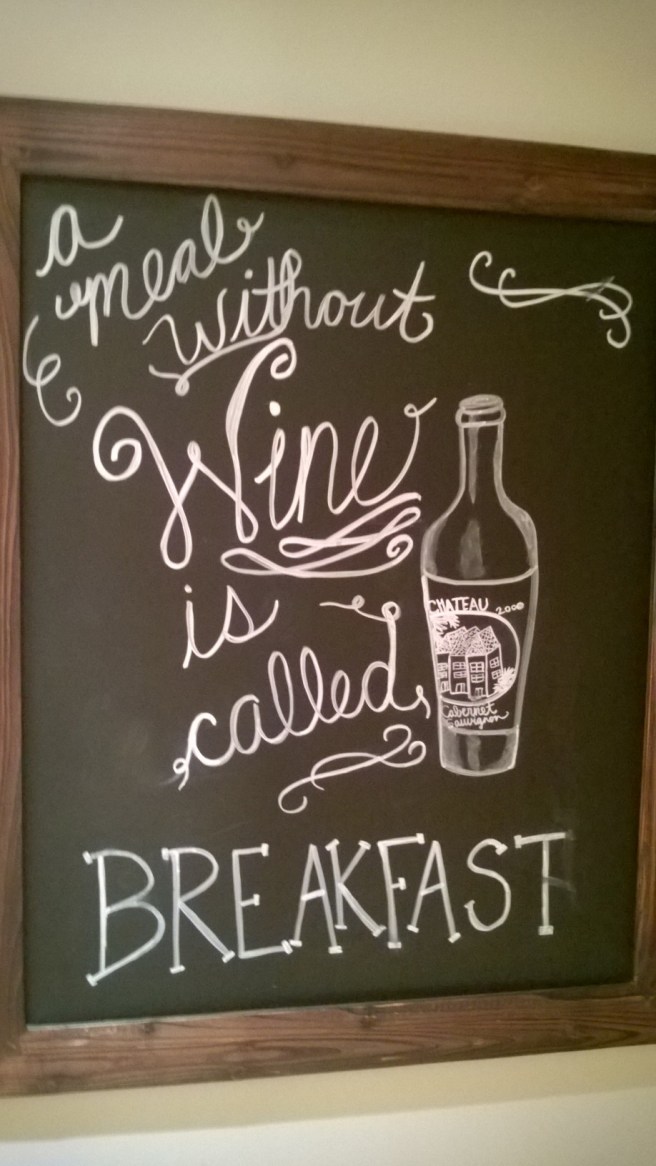 a
meal
without
Wine
is
called
BREAKFAST
CHATEAU 2000
Cabernet
Sauvignon